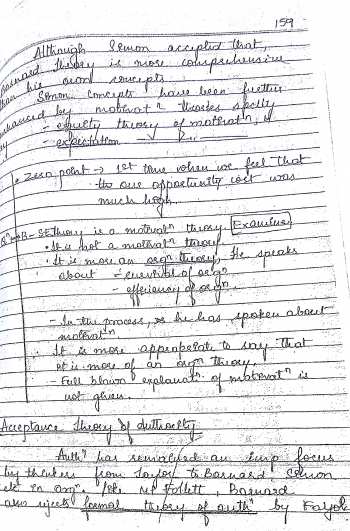 159
Although Simon accepted that,
Barnard theory is more comprehensive
than his own concepts
Simon concepts have been further
enhanced by motivatⁿ theories spclly
- equity theory of motivatⁿ, &
- expectation
• Zero point → 1st time when we feel that
the our opportunity cost was
much high.
Qⁿ → B-S theory is a motivatⁿ theory. Examine
• It is not a motivatⁿ theory
• It is more an orgⁿ theory, He speaks
about - survival of orgⁿ
- efficiency of orgⁿ.
- In the process, he has spoken about
motivatⁿ
∴ It is more appropriate to say that
it is more of an orgⁿ theory.
- Full blown explanatⁿ of motivatⁿ is
not given.
Acceptance Theory of Authority
Authʸ has remained an imp focus
by thinkers from Taylor to Barnard, Simon
etc in orgⁿ. like MP Follett, Barnard
also rejects formal theory of authʸ by Fayol